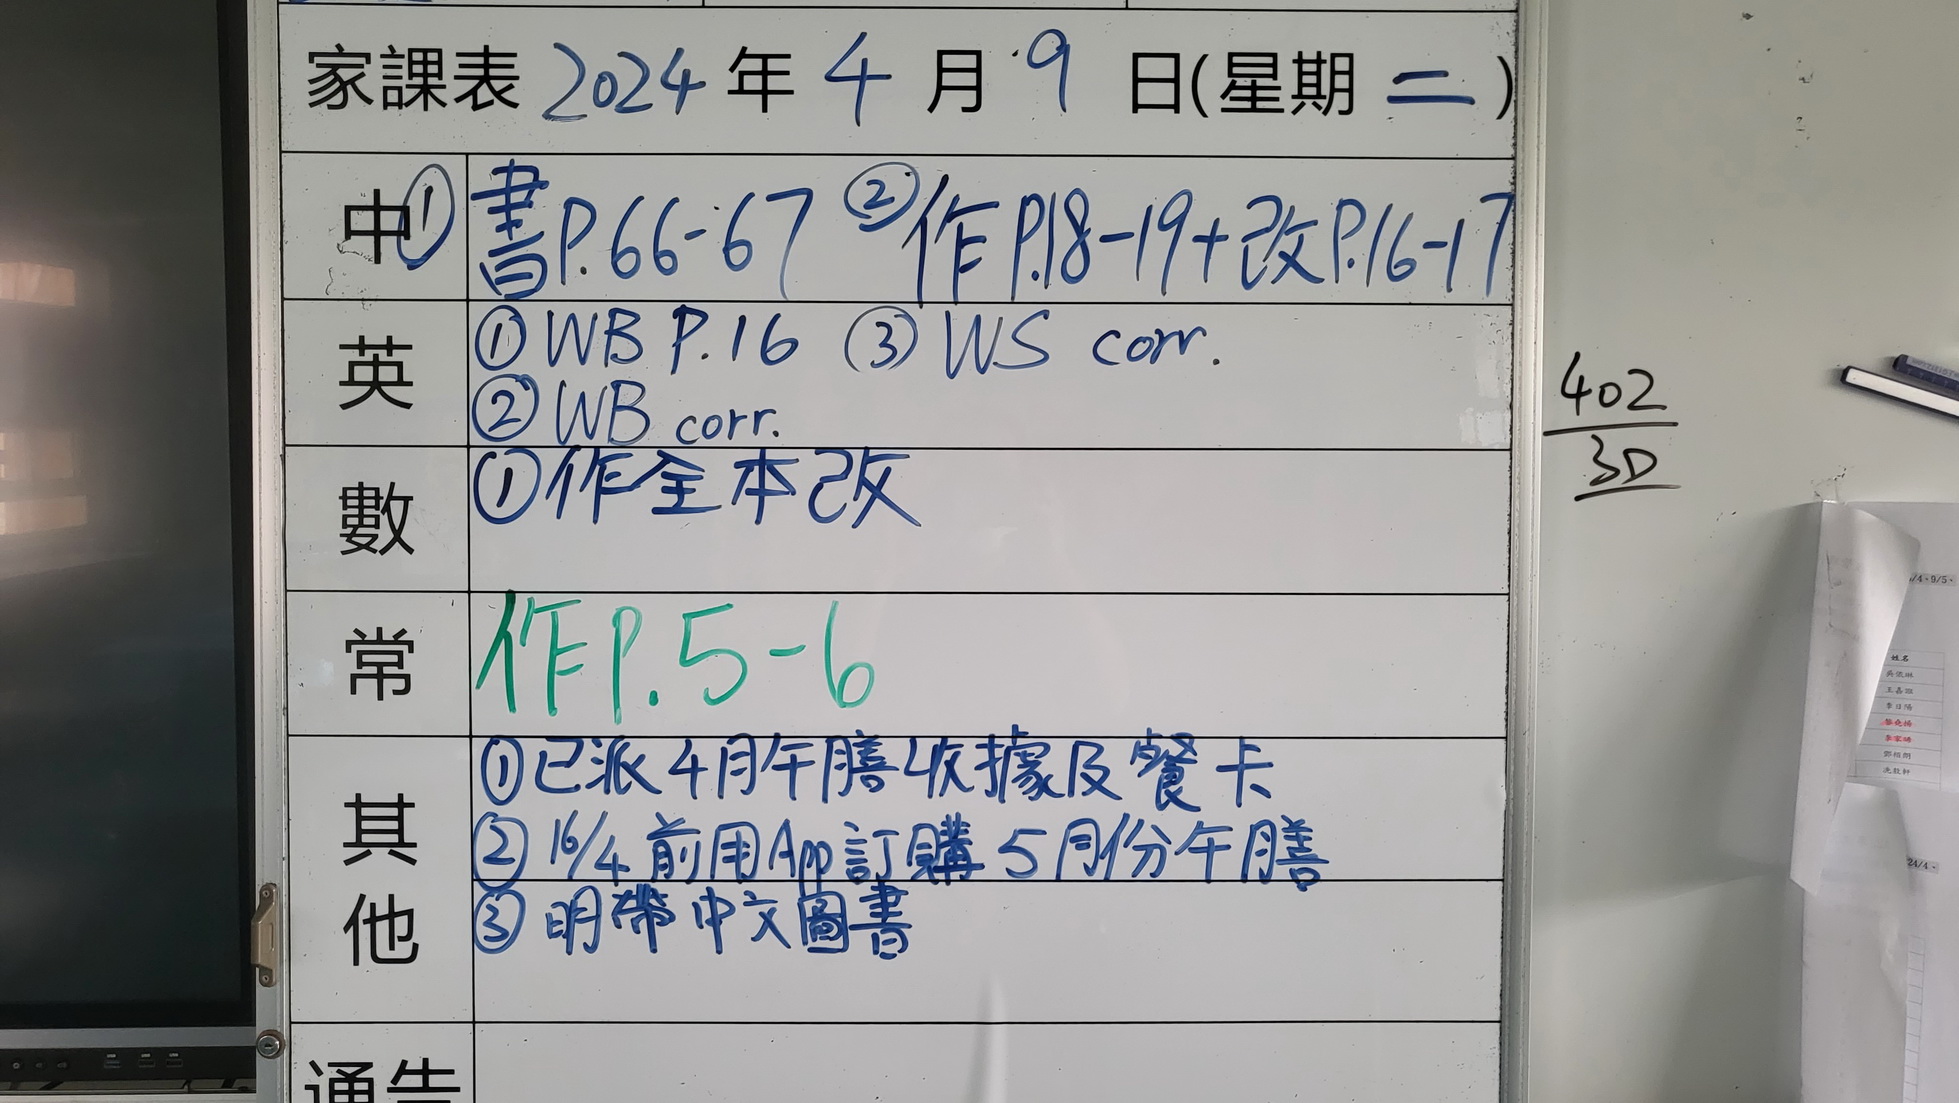 家課表 2024 年 4 月 9 日(星期 二 )
中 ① 書P.66-67 ② 作P.18-19+改P.16-17
英 ① WB P.16 ③ WS corr.
② WB corr.
數 ① 作全本改
常 作P.5-6
其他 ① 已派4月午膳收據及餐卡
② 16/4 前用App訂購5月份午膳
③ 明帶中文圖書
通告
402
3D
姓名
24/4